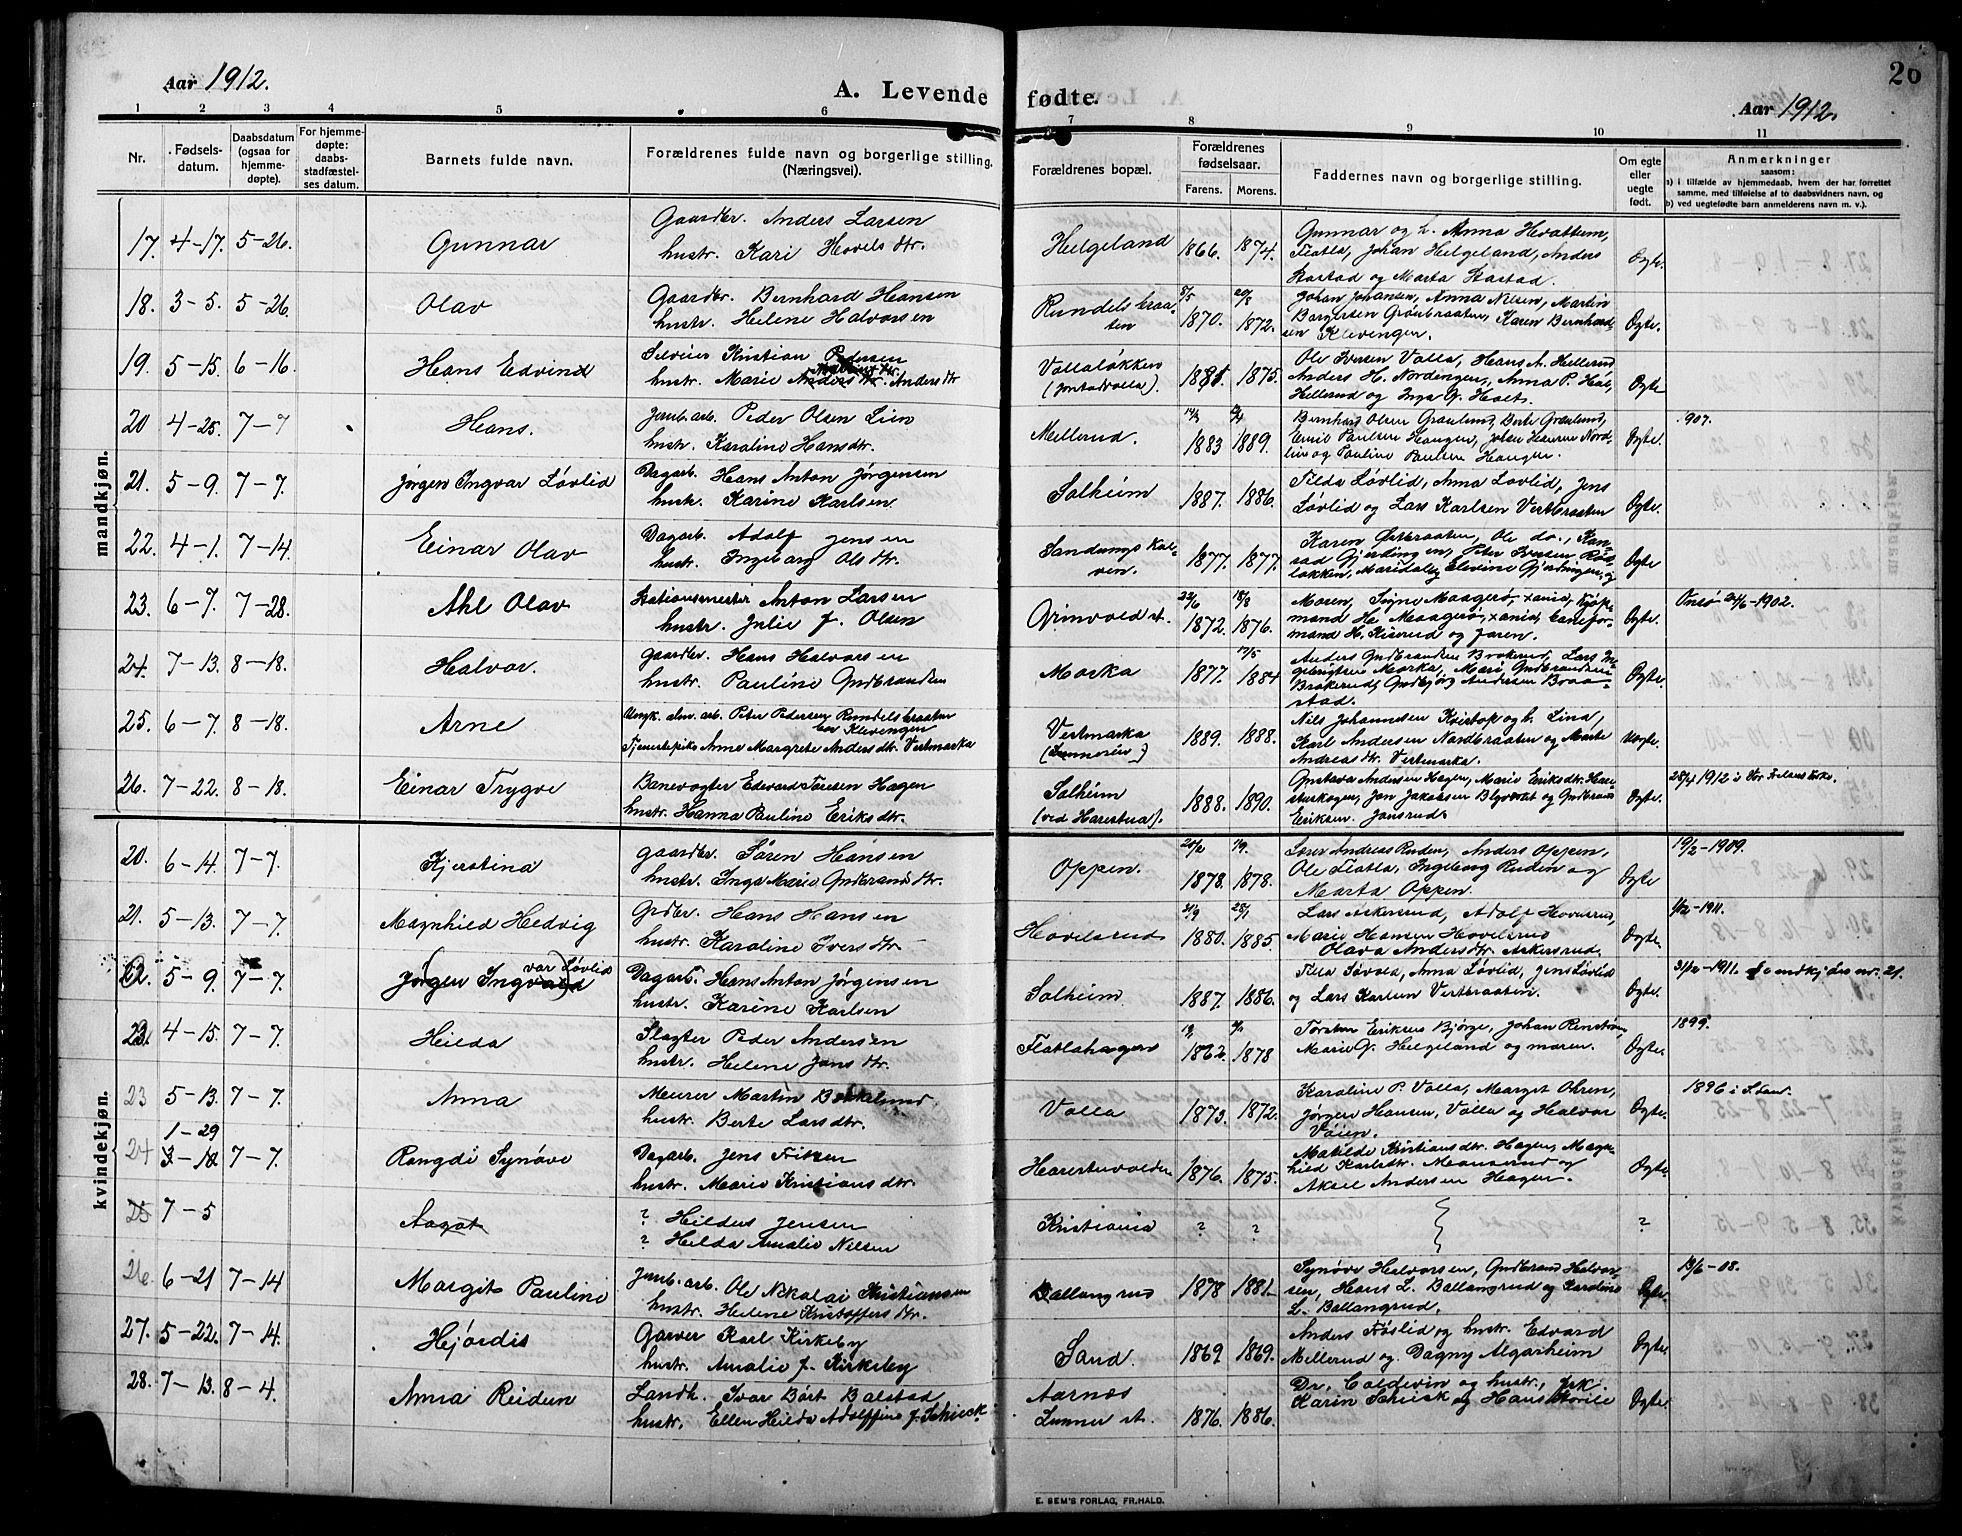 Aar 1912.
A. Levende fødte.
Aar 1912.
20
1 2 3 4 5 6 7 8 9 10 11
Nr. Fødselsdatum. Daabsdatum (ogsaa for hjemmedøpte). For hjemmedøpte: daabsstadfæstelses datum. Barnets fulde navn. Forældrenes fulde navn og borgerlige stilling. (Næringsvei). Forældrenes bopæl. Forældrenes fødselsaar. Farens. Morens. Faddernes navn og borgerlige stilling. Om egte eller uegte født. Anmerkninger
saasom:
a) i tilfælde av hjemmedaab, hvem der har forrettet samme, med tilføielse af to daabsvidners navn, og
b) ved uegtefødte barn anmelderens navn m. v.).
mandkjøn.
17. 4-17. 5-26. Gunnar Gaardbr. Anders Larsen
hustr. Kari Hovels dtr. Helgeland 1866. 1874. Gunnar og h. Anna Hvattum,
Flatla, Johan Helgeland, Anders
Kastad og Marta Kastad. Egte.
18. 3-5. 5-26. Olav Gaardbr. Bernhard Hansen
hustr. Helene Halvorsen Rundelsbraaten 1870. 1872. Johan Johansen, Anna Nilsen, Martin
Borgersen Grønbraaten, Karen Bernhardsen Klevengen. Egte.
19. 5-15. 6-16. Hans Edvind Kristian Pedersen
hustr. Marie Anders dtr. Volla­løkken 1875. Ole Iversen Volla, Hans A. Hellerud,
Anders H. Nordengen, Anna P. Hol,
Hellerud og Inga G. Holt. Egte
20 4-25. 7-7 Hans. Jernb. arb. Peder Olsen Lien
hustr. Karoline Hansdtr. Mellerud. 1883 1889. Bernhard Olsen Grønlund, Berte Grønlund,
Emil Paulsen Haugen, Johan Hansen Nordlien og Pauline Paulsen Haugen. Egte. 907.
21. 5-9. 7-7. Jørgen Ingvar Løvlid Dagarb. Hans Anton Jørgensen
hustr. Karine Karlsen Solheim 1887. 1886. Tilda Løvlid, Anna Løvlid, Jens
Løvlid og Lars Karlsen Vertbraaten Egte.
22. 4-1. 7-14. Einar Olav Dagarb. Adolf Jensen
hustr. Ingeborg Ols dtr. Sandungskalven. 1877. 1877. Karen Østbraaten, Ole do., Konrad Gjerdingen, Peter Iversen
løkken, Maridalen, Elevine Gjerdingen, Egte
23. 6-7. 7-28. Ahl Olav Stationsmester Anton Larsen
hustr. Julie f. Olsen Grinvold st. 22/6 1872. 18/8 1876. Maren, Signe Maagerø,
mand H. Maagerø, baneformand H. Kiserud og faren. Egte. Onsø 24/6-1902.
24. 7-13. 8-18. Halvor. Gaardbr. Hans Halvorsen
hustr. Pauline Gudbrandsen Morka 1877. 17/5 1884 Anders Gudbrandsen Brokerud, Lars
Morka, Mari Gudbrandsen
Brokerud, Gudbjør Andersen Braastad. Egte.
25. 6-7. 8-18. Arne Ungk. alm. arb. Peter Pedersen Rundelsbraaten
Klevengen
Tjenestepike Anne Margrete Anders dtr. Vertmarka Vestmarka 1889. 1888. Nils Johannesen Kvistop og h. Lina,
Karl Andersen Nordbraaten og Marte
Andreas dtr. Vestmarka. Uegte.
26. 7-22. 8-18. Einar Trygve Banevogter Edvard Hagen
hustr. Hanna Pauline Eriks dtr. Solheim
(ved Harestua). 1888. 1890. Gustava Andersen Hagen, Marie Eriksdtr.
Jon Jakobsen og Gudbrand
Eriksen Jonsrud. Egte. 28/4 1912 i Vor Frelsers Kirke.
kvindekjøn.
20. 6-14. 7-7. Kjerstina Gaardbr. Søren Hansen
hustr. Inga Marie Gudbrands dtr. Oppen. 1878. 1878. Andreas Ruden, Anders Oppen,
Ole Flatla, Ingeborg Ruden og
Marta Oppen. Egte 19/2-1909.
21. 5-13. 7-7. Magnhild Hedvig Grdbr. Hans Hansen
hustr. Karoline Ivers dtr. Hovelsrud 1880. 1885. Lars Askersrud, Adolf Hovelsrud,
Marie Hansen Hovelsrud
Olava Andersdtr. Askersrud. Egte. -1911.
22. 5-9. 7-7. Jørgen Ingvar Løvlid Dagarb. Hans Anton Jørgensen
hustr. Karine Karlsen Solheim 1887. 1886. Løvlid, Anna Løvlid, Jens Løvlid
og Lars Karlsen Vertbraaten. Egte. 31/12-1911. Se mandkjøns nr. 21.
23. 4-15. 7-7. Hilda Slagter Peder Andersen
hustr. Helene Jons dtr. Flatlahagen 1862. 1878 Torsten Eriksen Bjørge, Johan Renstrøm,
Marie G. Helgeland og moren. Egte. 1899.
23 5-13. 7-7. Anna Murer Martin
hustr. Berte Larsdtr. Volla 1873. 1872. Karoline P. Volla, Marget Ohren,
Jørgen Hansen, Volla og Halvor
Vøien. Egte. 1896 i S. Land.
24 1-29
3-12 7-7. Rangdi Synøve Dagarb. Jens Fritzen
hustr. Marie Kristians dtr. Harestuvolden 1876. 1875. Matilde Kristiansdtr. Hagen, Magnhild Karlsdtr. og
Aksel Andersen Hagen. Egte.
25 7-5 Aagot ? Hilders Jensen
? Hilda Amalie Nilsen Kristiania ? ? ?
26. 6-21 7-14 Margit Pauline Jernb. arb. Ole Nikolai Kristiansen
hustr. Helene Kristoffers dtr. Ballangrud 1878 1881 Synøve Halvorsen, Gudbrand Halvorsen, Hans L. Ballangrud og Karoline
L. Ballangrud. Egte. 13/6-08.
27. 5-22. 7-14. Hjørdis Garver Karl Kirkeby
hustr. Amalie f. Kirkeby Sand. 1869 1869. Anders Frøslid og hustr. Edvard
Mellerud og Dagny Algarheim Egte.
28. 7-13. 8-4. Anna Reidun Landh. Ivar Børt Balstad
hustr. Ellen Hilda Adolffine f. Schieck Aarnes
Lunner st. 1876. 1886. Dr. Coldevin og hustr., frk
Karin Schieck og Hans Egte.
E. SEM'S FORLAG, FR.HALD.